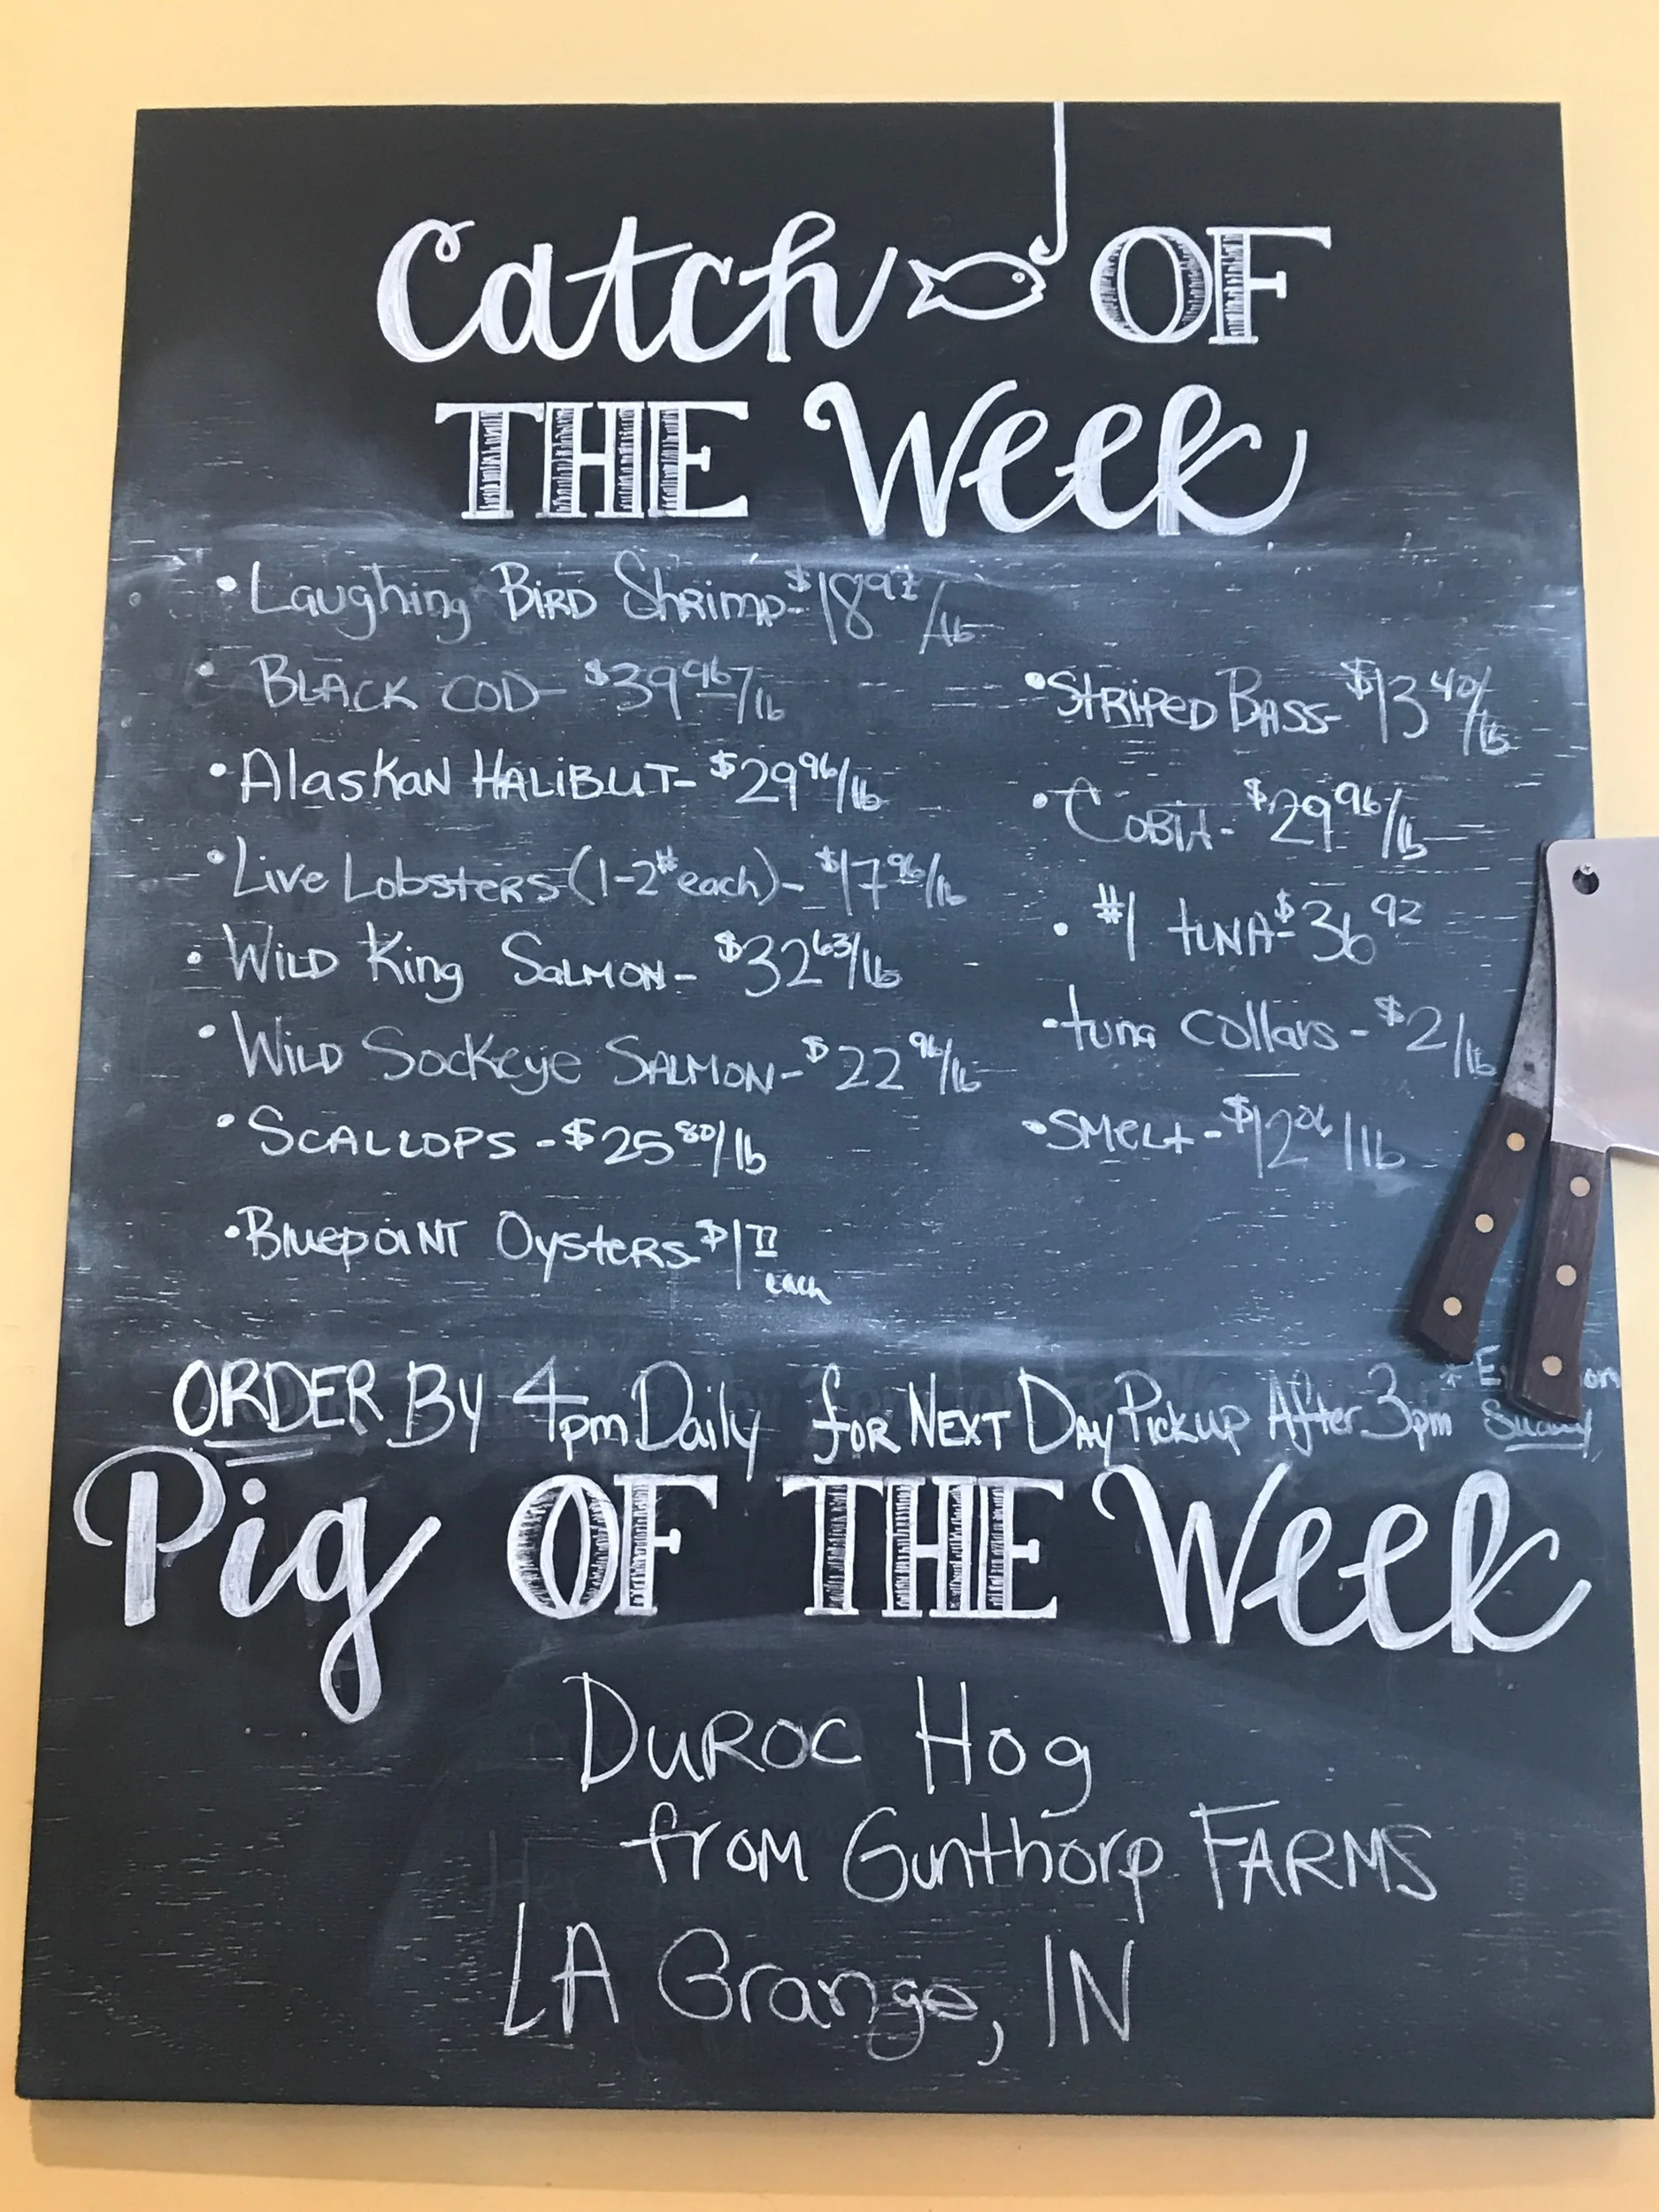 Catch OF
THE Week
• Laughing Bird Shrimp - $18 97/lb
• Black Cod - $39 96/lb
• Alaskan Halibut - $29 96/lb
• Live Lobsters (1-2# each) - $17 96/lb
• Wild King Salmon - $32 63/lb
• Wild Sockeye Salmon - $22 96/lb
• Scallops - $25 80/lb
• Bluepoint Oysters - $1 77 each
• Striped Bass - $13 40/lb
• Cobia - $29 96/lb
• #1 tuna - $36 92
• tuna collars - $2/lb
• Smelt - $12 06/lb
ORDER By 4pm Daily for Next Day Pickup After 3pm *
Sunday
Pig OF THE Week
Duroc Hog
from Gunthorp FARMS
LA Grange, IN